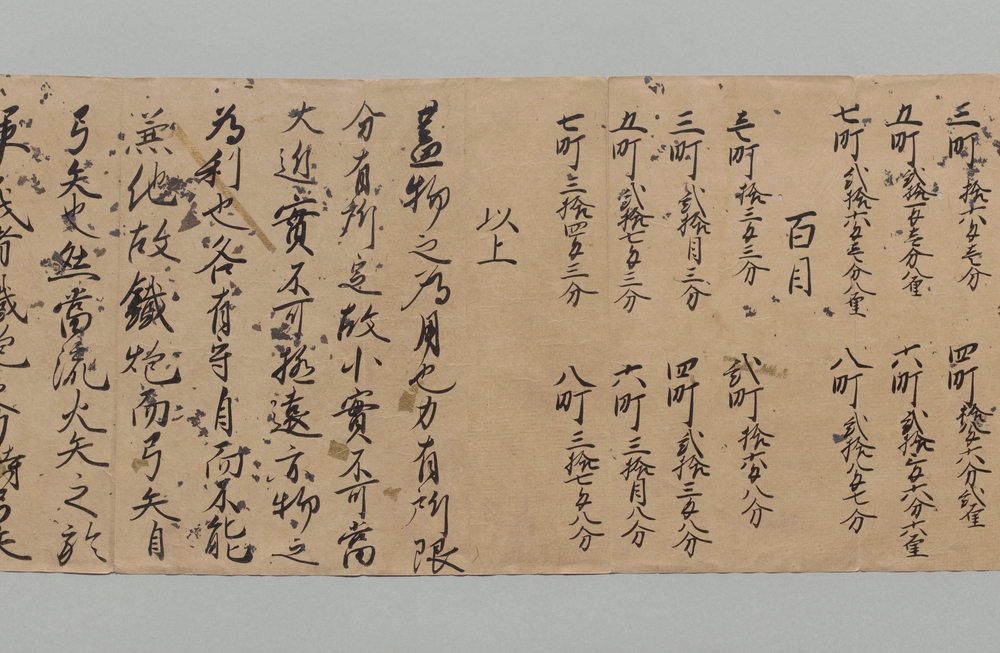 三町 拾六匁壱分 四町
五町 弐拾一匁壱分八厘 六町 弐拾
七町 弐拾六匁壱分八厘 八町 弐拾八匁七分
百目
壱町 拾三匁三分 弐町 拾六匁八分
三町 弐拾目三分 四町 弐拾三匁八分
五町 弐拾七匁三分 六町 三拾目八分
七町 三拾四匁三分 八町 三拾七匁八分
以上
蓋物之為用也力有所限
分有所定故小實不可當
大近實不可極遠方物之
為利也各有守自而不能
兼他故鐵炮而弓矢自
弓矢也然當流火矢之於